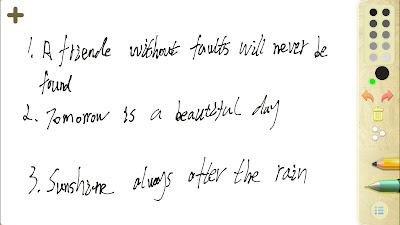 1. A friende without faults will never be
found
2. Tomorrow is a beautiful day
3. Sunshine always after the rain